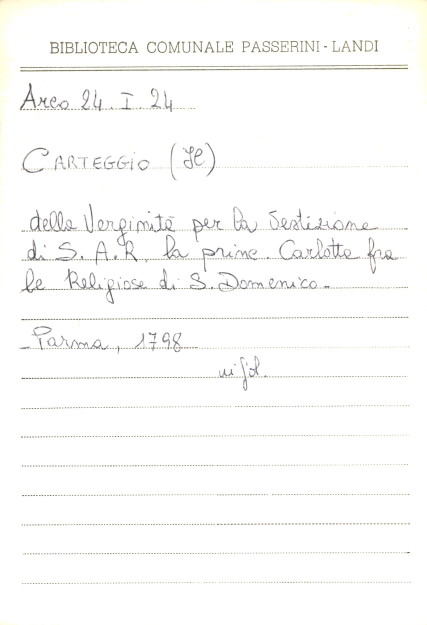 BIBLIOTECA COMUNALE PASSERINI-LANDI
Arco 24. I. 24
CARTEGGIO (Il)
della Verginità per la Vestizione
di S. A. R. la princ. Carlotta fra
le Religiose di S. Domenico -
- Parma, 1798
in fol.